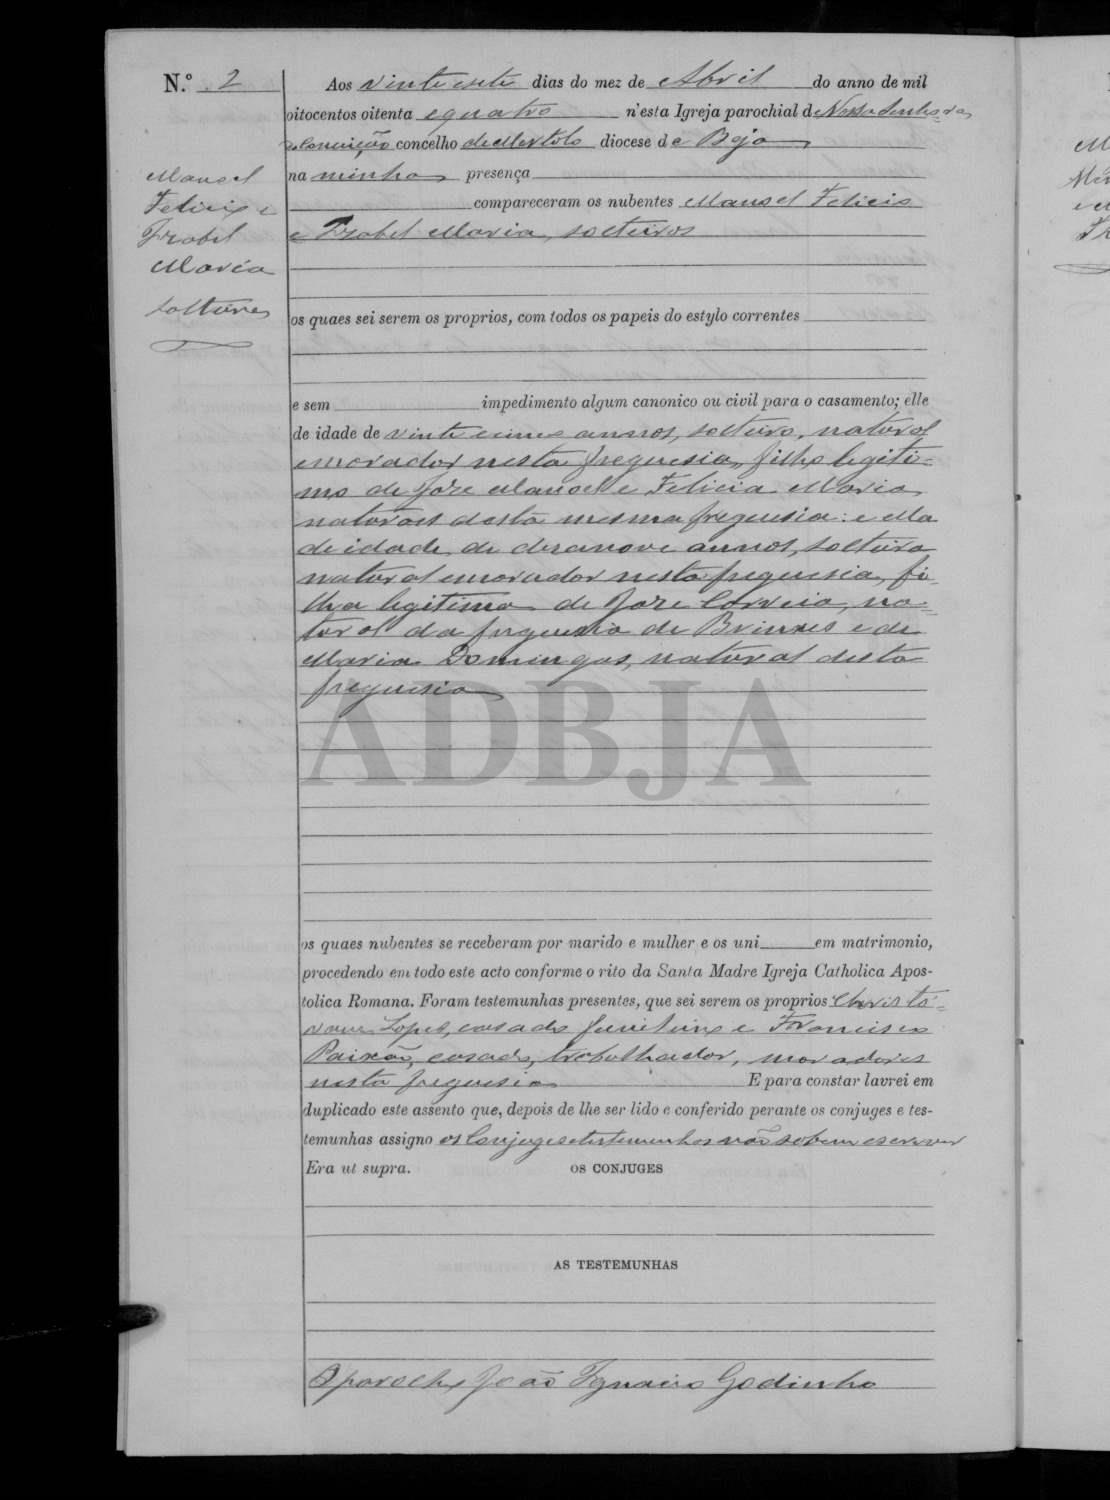 N.º 2
Manoel
Felicix e
Izabel
Maria
solteiros
Aos vinte e sete dias do mez de Abril do anno de mil
oitocentos oitenta e quatro n'esta Igreja parochial de Nossa Senhora da
Conceição concelho de Mertola diocese de Beja
na minha presença
compareceram os nubentes Manoel Felicio
e Izabel Maria, solteiros
os quaes sei serem os proprios, com todos os papeis do estylo correntes
e sem impedimento algum canonico ou civil para o casamento; elle
de idade de vinte e cinco annos, solteiro, natural
e morador nesta freguesia, filho legiti=
mo de Joze Manoel e Felicia Maria
naturaes desta mesma freguesia: e ella
de idade de desanove annos, solteira
natural e morador nesta freguesia, fi=
lha legitima de Joze Correia, na=
tural da freguesia de e de
Maria Domingas, natural desta
freguesia
ADBJA
os quaes nubentes se receberam por marido e mulher e os uni em matrimonio,
procedendo em todo este acto conforme o rito da Santa Madre Igreja Catholica Apos-
tolica Romana. Foram testemunhas presentes, que sei serem os proprios Christo=
vam Lopes, casado e Francisco
Paixão, casado, trabalhador, moradores
nesta freguesia E para constar lavrei em
duplicado este assento que, depois de lhe ser lido e conferido perante os conjuges e tes-
temunhas assigno os Conjuges e testemunhas não sabem escrever
Era ut supra. OS CONJUGES
AS TESTEMUNHAS
O parocho João Ignacio Godinho